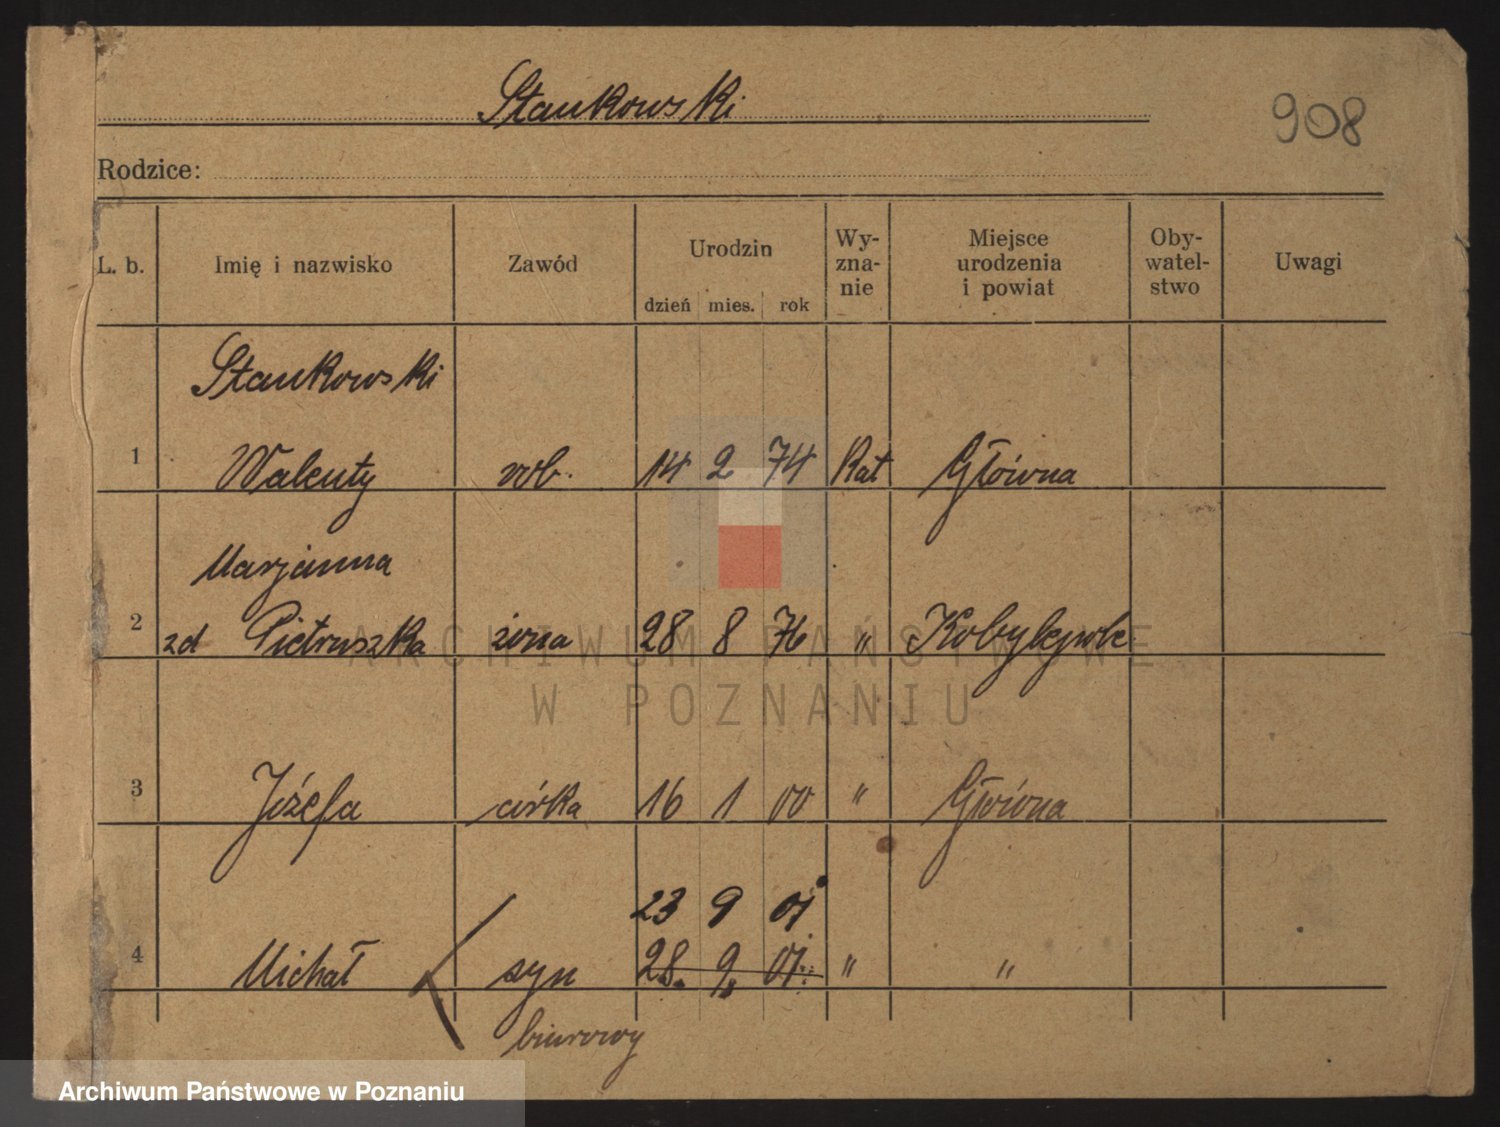 Stankowski
908
Rodzice:
L. b. Imię i nazwisko Zawód Urodzin dzień mies. rok Wy-zna-nie Miejsce urodzenia i powiat Oby-watel-stwo Uwagi
Stankowski
1 Walenty rob. 14 2 74 Kat Główna
Marjanna
2 zd Pietruszka żona 28 8 76 " Kobylepole
ARCHIWUM PAŃSTWOWE
W POZNANIU
3 Józefa córka 16 1 00 " Główna
23 9 01
4 Michał syn 28. 9. 01. " "
biurowy
Archiwum Państwowe w Poznaniu